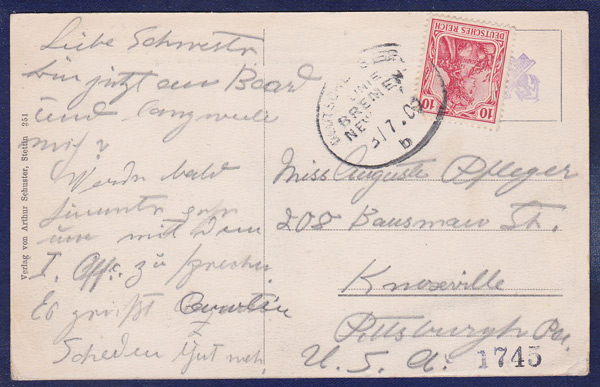 Liebe Schwester
bin jetzt an Board
und langweile
mich?
Werde bald
hinunter gehn
um mit dem
I. Offc. zu sprechen
Es grüßt
Scheden thut weh.
Verlag von Arthur Schuster, Stettin 251
DEUTSCHES REICH
10 10
DEUTSCHE
LINIE
BREMEN
NEW
31 7 09
b
Miss Auguste Pfleger
208 Bausman St.
Knoxville
Pittsburgh Pa.
U. S. A. 1745